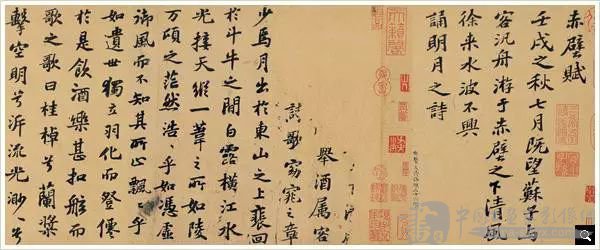 赤壁賦
壬戌之秋七月既望蘇子與
客汎舟游于赤壁之下清風
徐來水波不興
舉酒属客
誦明月之詩
歌窈窕之章
少焉月出於東山之上裴回
於斗牛之間白露橫江水
光接天縱一葦之所如陵
萬頃之茫然浩々乎如憑虛
御風而不知其所止飄々乎
如遺世獨立羽化而登僊
於是飲酒樂甚扣舷而
歌之歌曰桂棹兮蘭槳
擊空明兮泝流光渺々兮